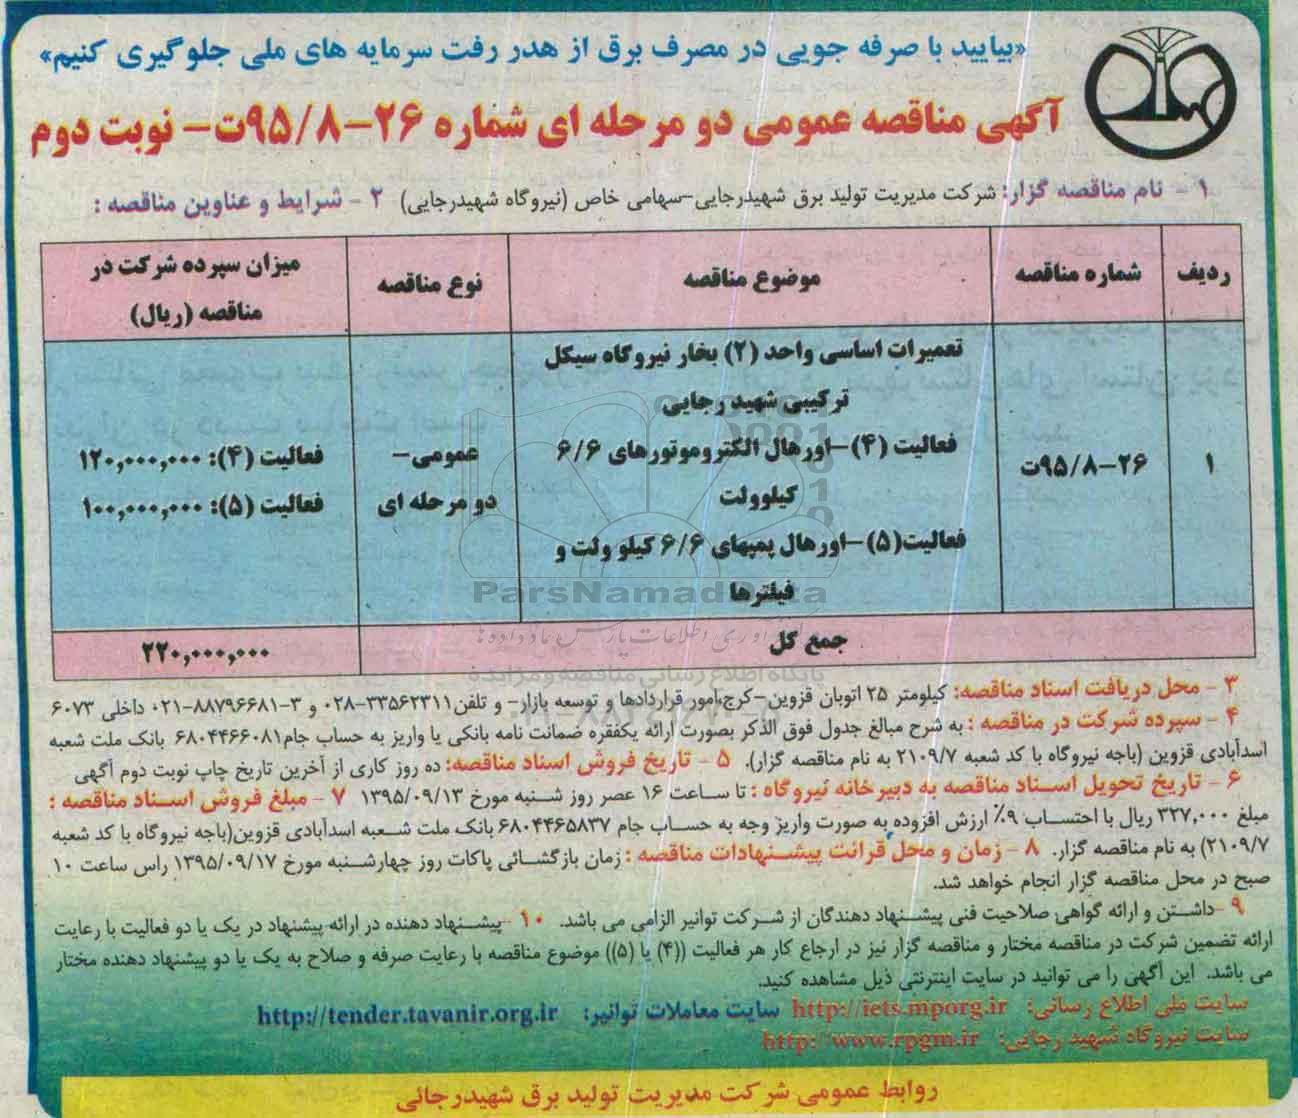 «بیایید با صرفه جویی در مصرف برق از هدر رفت سرمایه های ملی جلوگیری کنیم»
آگهی مناقصه عمومی دو مرحله ای شماره ۲۶-۹۵/۸ت- نوبت دوم
۱ - نام مناقصه گزار: شرکت مدیریت تولید برق شهیدرجایی-سهامی خاص (نیروگاه شهیدرجایی) ۲ - شرایط و عناوین مناقصه :
ردیف شماره مناقصه موضوع مناقصه نوع مناقصه میزان سپرده شرکت در
مناقصه (ریال)
۱ ۲۶-۹۵/۸ت
تعمیرات اساسی واحد (۲) بخار نیروگاه سیکل
ترکیبی شهید رجایی
فعالیت (۴)-اورهال الکتروموتورهای ۶/۶
کیلوولت
فعالیت(۵)-اورهال پمپهای ۶/۶ کیلو ولت و
فیلترها
عمومی-
دو مرحله ای
فعالیت (۴): ۱۲۰,۰۰۰,۰۰۰
فعالیت (۵): ۱۰۰,۰۰۰,۰۰۰
جمع کل ۲۲۰,۰۰۰,۰۰۰
ParsNamadData
پایگاه اطلاع رسانی مناقصه و مزایده
۳ - محل دریافت اسناد مناقصه: کیلومتر ۲۵ اتوبان قزوین-کرج،امور قراردادها و توسعه بازار- و تلفن۳۳۵۶۲۳۱۱-۰۲۸ و ۳-۸۸۷۹۶۶۸۱-۰۲۱ داخلی ۶۰۷۳
۴ - سپرده شرکت در مناقصه : به شرح مبالغ جدول فوق الذکر بصورت ارائه یکفقره ضمانت نامه بانکی یا واریز به حساب جام۶۸۰۴۴۶۶۰۸۱ بانک ملت شعبه
اسدآبادی قزوین (باجه نیروگاه با کد شعبه ۲۱۰۹/۷ به نام مناقصه گزار). ۵ - تاریخ فروش اسناد مناقصه: ده روز کاری از آخرین تاریخ چاپ نوبت دوم آگهی
۶ - تاریخ تحویل اسناد مناقصه به دبیرخانه نیروگاه : تا ساعت ۱۶ عصر روز شنبه مورخ ۱۳۹۵/۰۹/۱۳ ۷ - مبلغ فروش اسناد مناقصه :
مبلغ ۳۲۷,۰۰۰ ریال با احتساب ۹٪ ارزش افزوده به صورت واریز وجه به حساب جام ۶۸۰۴۴۶۵۸۳۷ بانک ملت شعبه اسدآبادی قزوین(باجه نیروگاه با کد شعبه
۲۱۰۹/۷) به نام مناقصه گزار. ۸ - زمان و محل قرائت پیشنهادات مناقصه : زمان بازگشائی پاکات روز چهارشنبه مورخ ۱۳۹۵/۰۹/۱۷ راس ساعت ۱۰
صبح در محل مناقصه گزار انجام خواهد شد.
۹ -داشتن و ارائه گواهی صلاحیت فنی پیشنهاد دهندگان از شرکت توانیر الزامی می باشد. ۱۰ -پیشنهاد دهنده در ارائه پیشنهاد در یک یا دو فعالیت با رعایت
ارائه تضمین شرکت در مناقصه مختار و مناقصه گزار نیز در ارجاع کار هر فعالیت ((۴) یا (۵)) موضوع مناقصه با رعایت صرفه و صلاح به یک یا دو پیشنهاد دهنده مختار
می باشد. این آگهی را می توانید در سایت اینترنتی ذیل مشاهده کنید.
سایت ملی اطلاع رسانی: http://iets.mporg.ir سایت معاملات توانیر: http://tender.tavanir.org.ir
سایت نیروگاه شهید رجایی: http://www.rpgm.ir
روابط عمومی شرکت مدیریت تولید برق شهیدرجائی